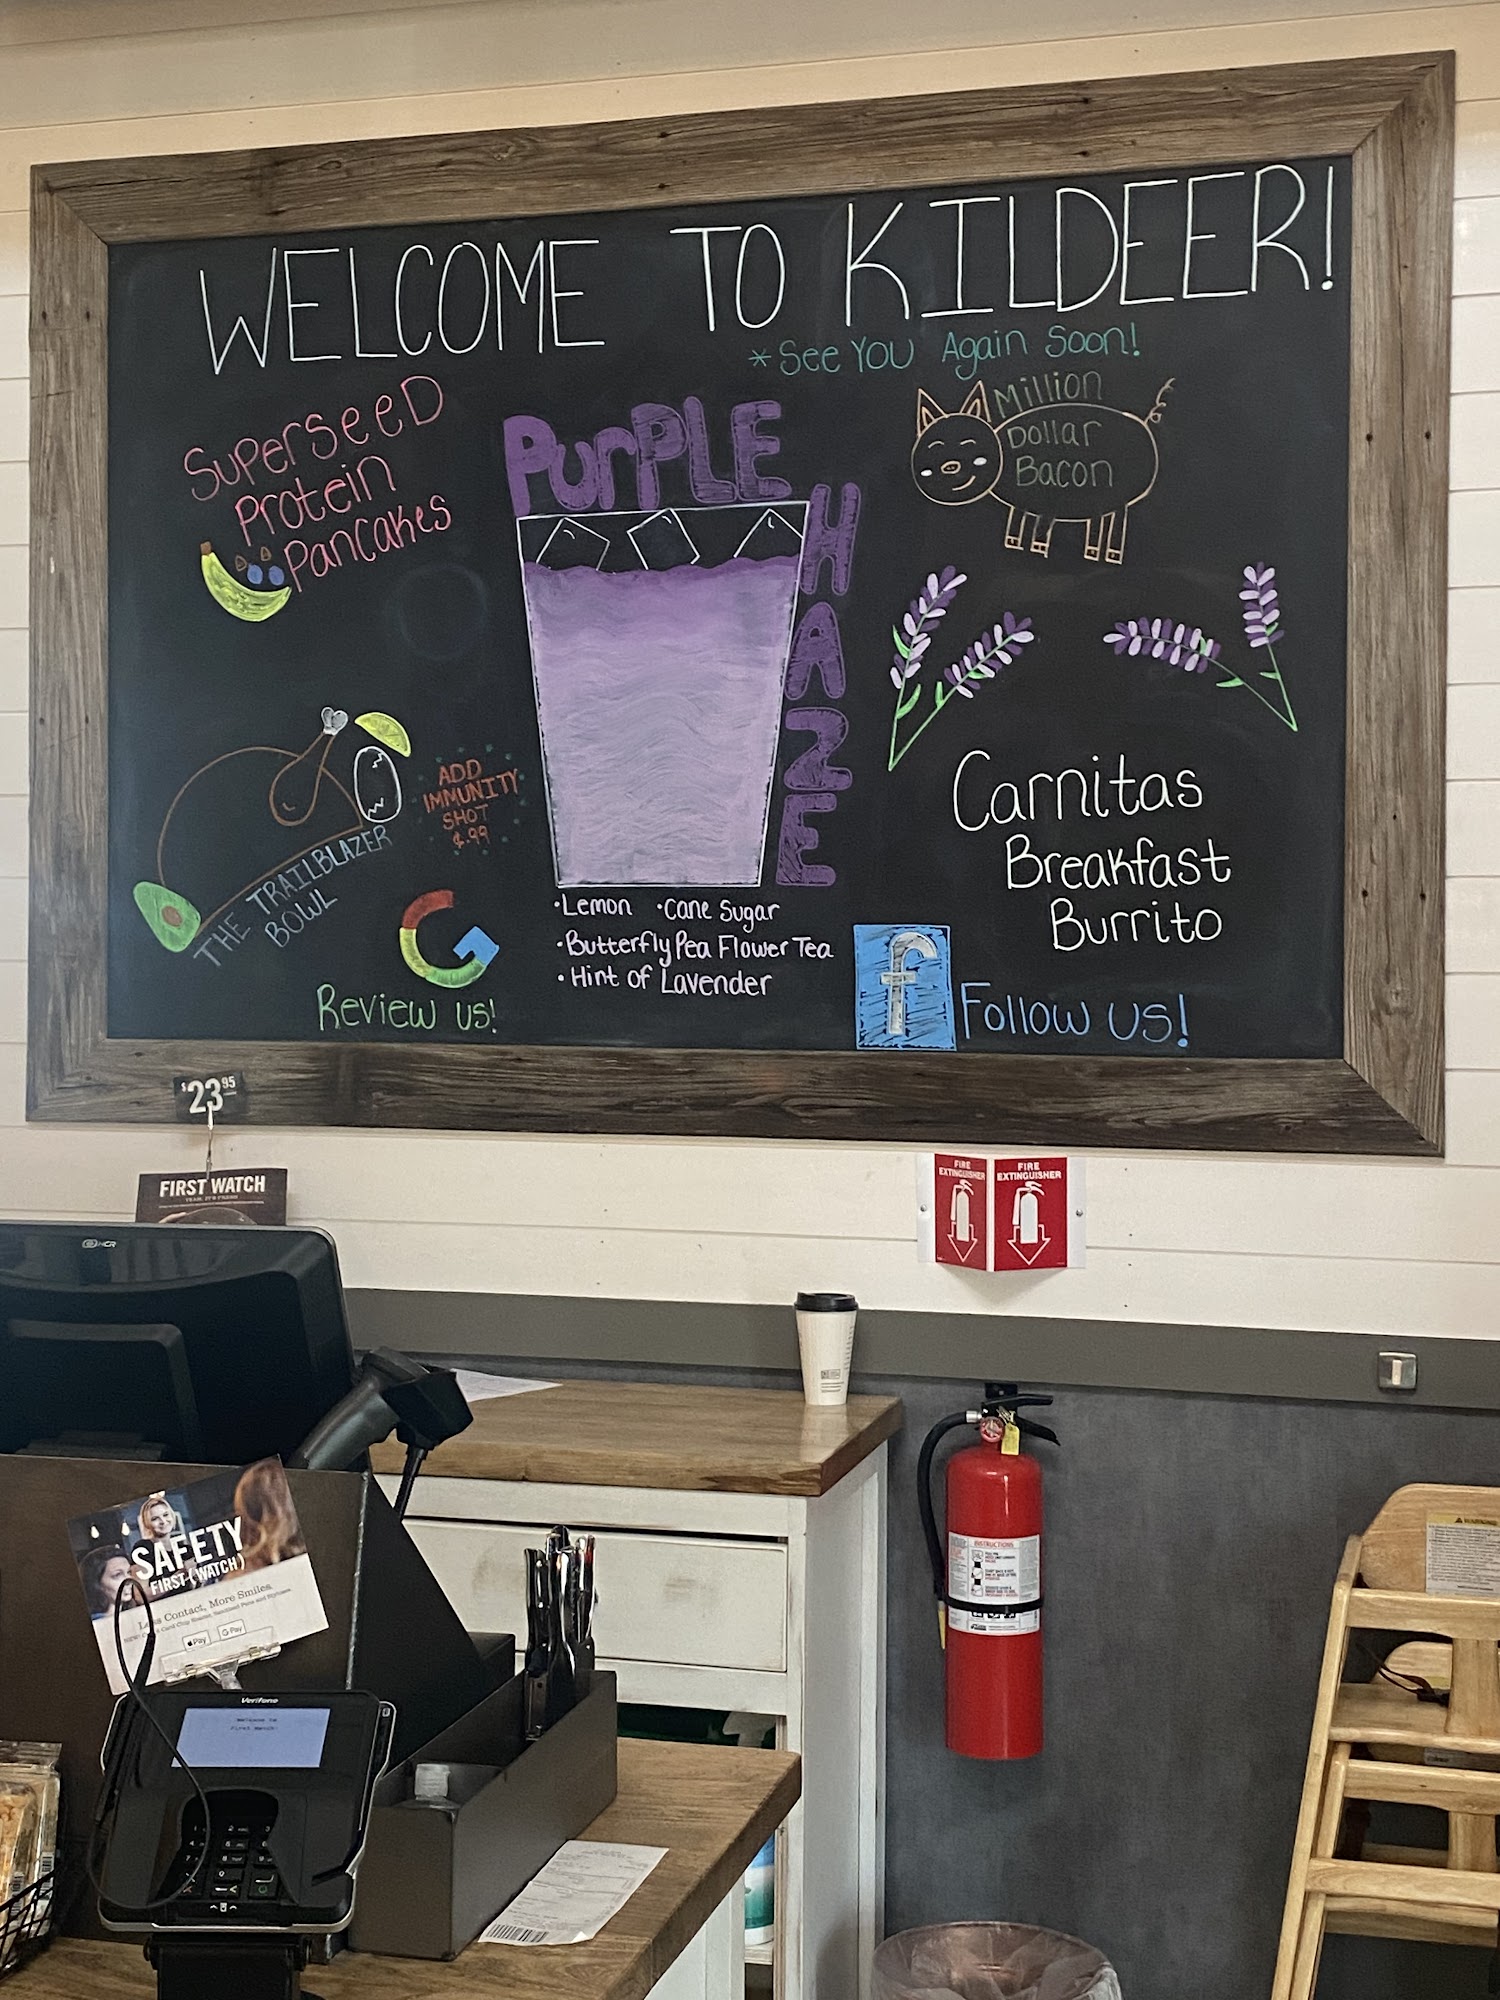 WELCOME TO KILDEER!
*See YOU Again Soon!
SuperSeeD
Protein
Pancakes
PurPLE
HAZE
Million
Dollar
Bacon
ADD
IMMUNITY
SHOT
$.99
THE TRAILBLAZER
BOWL
Carnitas
Breakfast
Burrito
•Lemon •Cane Sugar
•Butterfly Pea Flower Tea
•Hint of Lavender
G
Review us!
f
Follow us!
$23.95
FIRST WATCH
FIRE
EXTINGUISHER
FIRE
EXTINGUISHER
NCR
SAFETY
FIRST (WATCH)
Less Contact, More Smiles
Pay
G Pay
Verifone
Welcome to
First Watch!
INSTRUCTIONS
WARNING